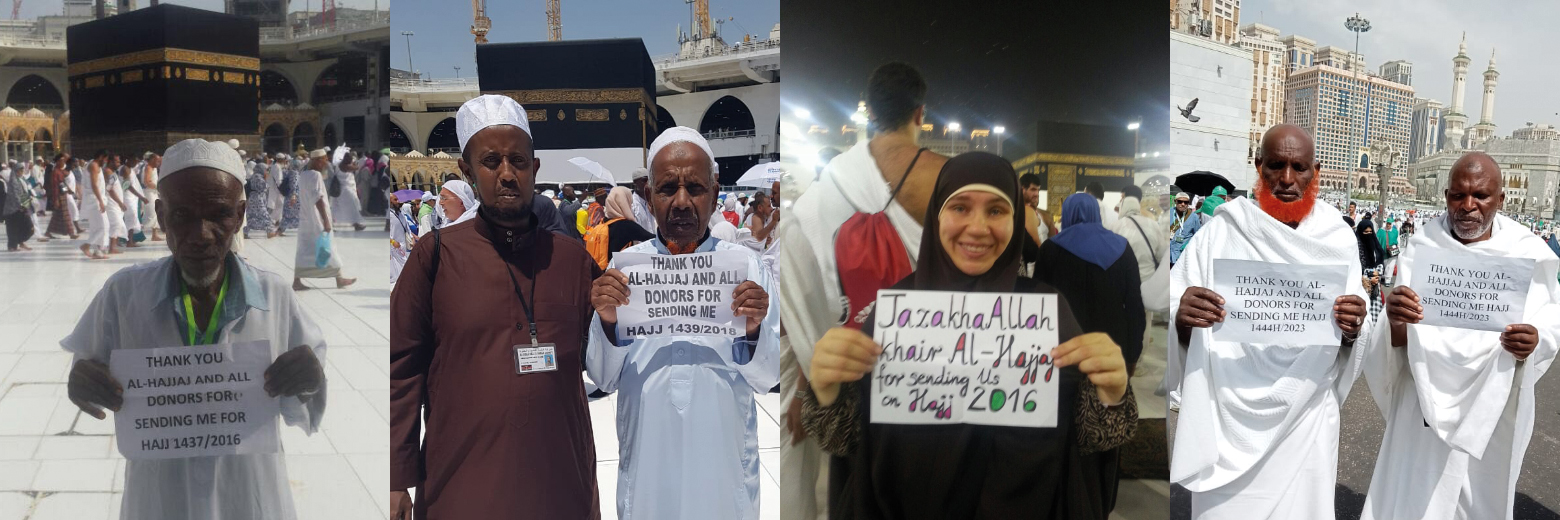 THANK YOU
AL-HAJJAJ AND ALL
DONORS FOR
SENDING ME FOR
HAJJ 1437/2016
THANK YOU
AL-HAJJAJ AND ALL
DONORS FOR
SENDING ME
HAJJ 1439/2018
JazakhaAllah
khair Al-Hajjaj
for sending Us
on Hajj 2016
THANK YOU AL-
HAJJAJ AND ALL
DONORS FOR
SENDING ME HAJJ
1444H/2023
THANK YOU AL-
HAJJAJ AND ALL
DONORS FOR
SENDING ME HAJJ
1444H/2023